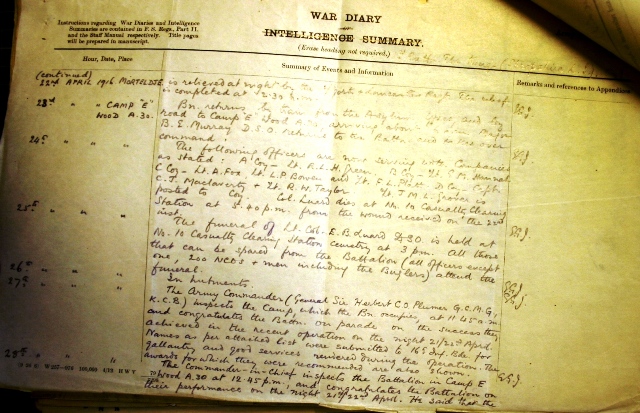 WAR DIARY
INTELLIGENCE SUMMARY.
(Erase heading not required.)
Instructions regarding War Diaries and Intelligence
Summaries are contained in F. S. Regs., Part II.
and the Staff Manual respectively. Title pages
will be prepared in manuscript.
Hour, Date, Place
Summary of Events and Information
Remarks and references to Appendices
(continued)
22nd APRIL 1916 MORTELDJE is relieved at night by the relief
is completed at 12.39 a.m.
23rd " CAMP "E" Bn. returns by train from the Asylum Ypres, and by
WOOD A.30. road to Camp E Wood A.30 arriving about Major
B. E. Murray D.S.O. returns to the Battn. and takes over
command.
24th " " The following Officers are now serving with Companies
as stated: A Coy - Lt. E. L. H. Green. B Coy - Lt.
C Coy - Lt. A. Fox Lt. L. P. Bowen and Lt. F. L. Platt D Coy - Capt.
C. T. Maclaverty & Lt. R. H. Taylor Lt. J. M. L. Grover is
posted to Coy. Col. Luard dies at No. 10 Casualty Clearing
Station at 5.40 p.m. from the wound received on the 22nd
inst.
25th " " The funeral of Lt. Col. E. B. Luard D.S.O. is held at
No. 10 Casualty Clearing Station cemetery at 3 pm. All those
that can be spared from the Battalion (all officers except
one, 200 NCOs & men including the Buglers) attend the
funeral.
26th " " In hutments.
27th " " The Army Commander (General Sir Herbert C. O. Plumer G.C.M.G,
K.C.B) inspects the Camp, which the Bn. occupies, at 11.45 a.m
and congratulates the Battn. on parade on the success they
achieved in the recent operation on the night 21/22nd April.
Names as per attached list were submitted to 16th Inf. Bde for
gallantry and good services rendered during the Operation. The
awards for which they were recommended are also shown.
28th " " The Commander-in-Chief inspects the Battalion in Camp E
Wood A.30 at 12.45 p.m. and congratulates the Battalion on
their performance on the night 21st/22nd April. He said that the